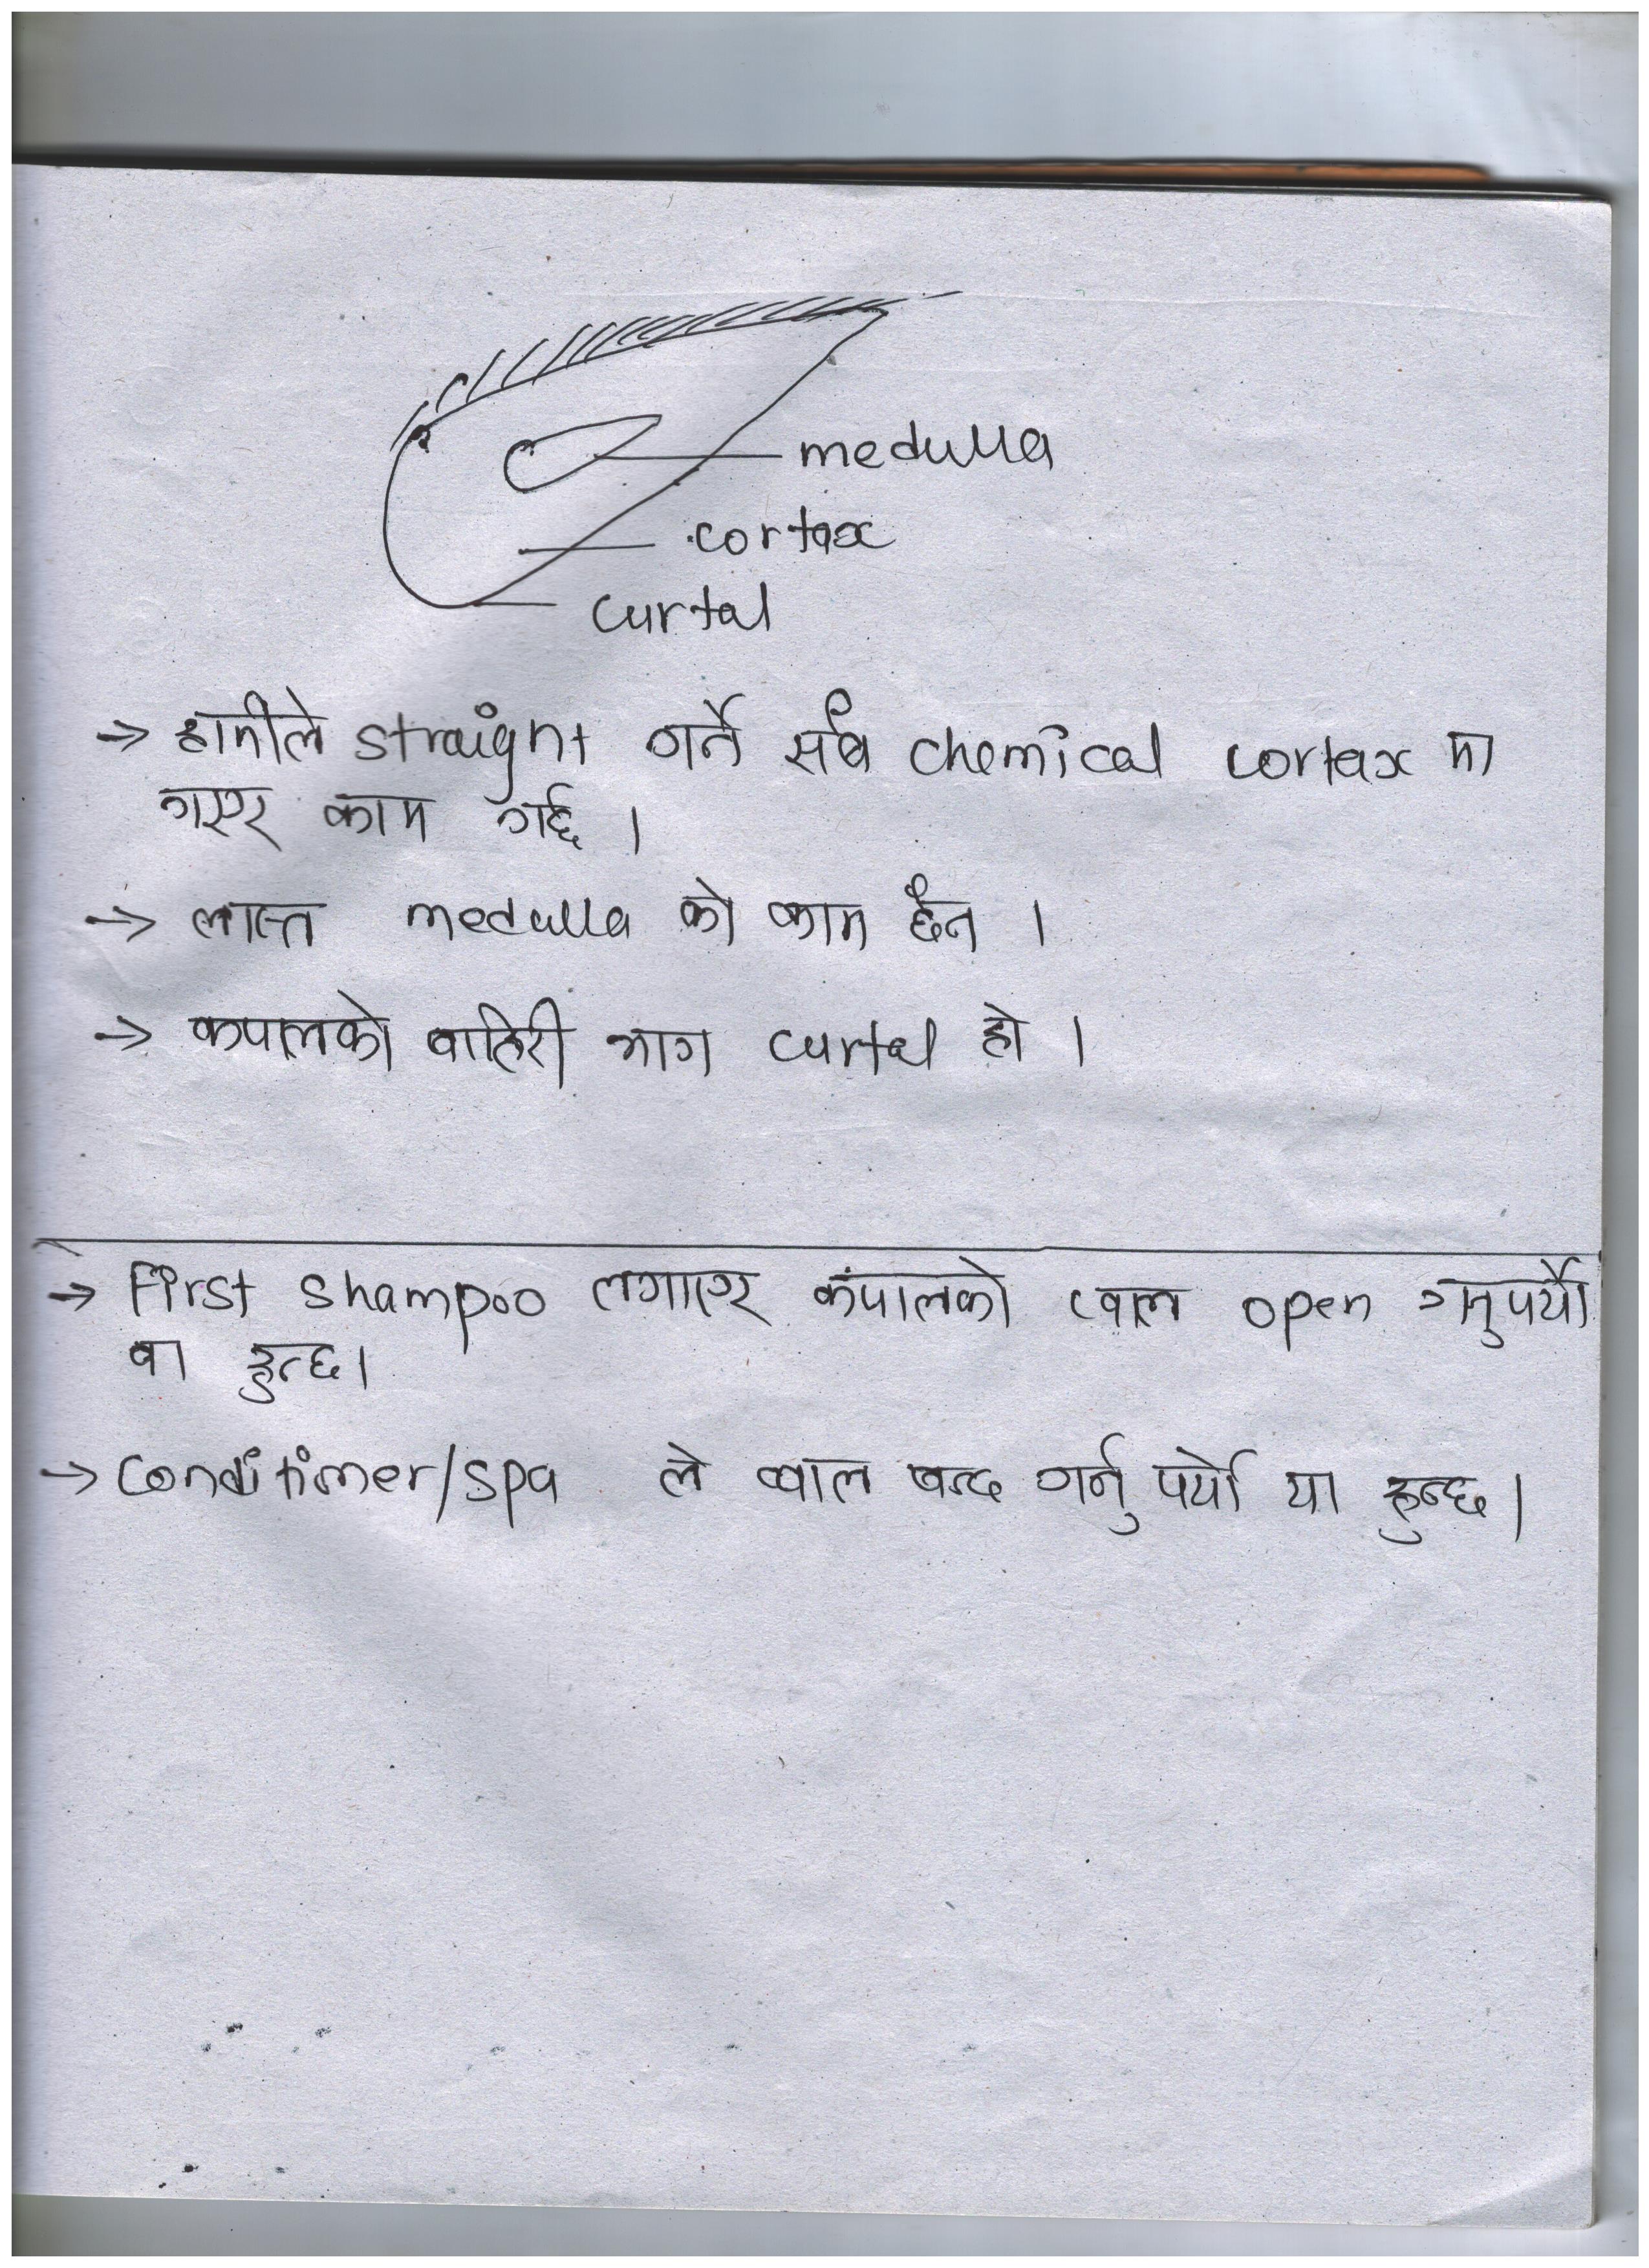 medulla
cortax
curtal
→ हामीले straight गर्ने सबै chemical cortax मा
गएर काम गर्छ ।
→ लास्त medulla को काम छैन ।
→ कपालको बाहिरी भाग curtal हो ।
→ First shampoo लगाएर कपालको त्वाल open गनुपर्यो
वा हुन्छ।
→ Conditinmer/spa ले त्वाल बन्द गर्नु पर्यो या हुन्छ।